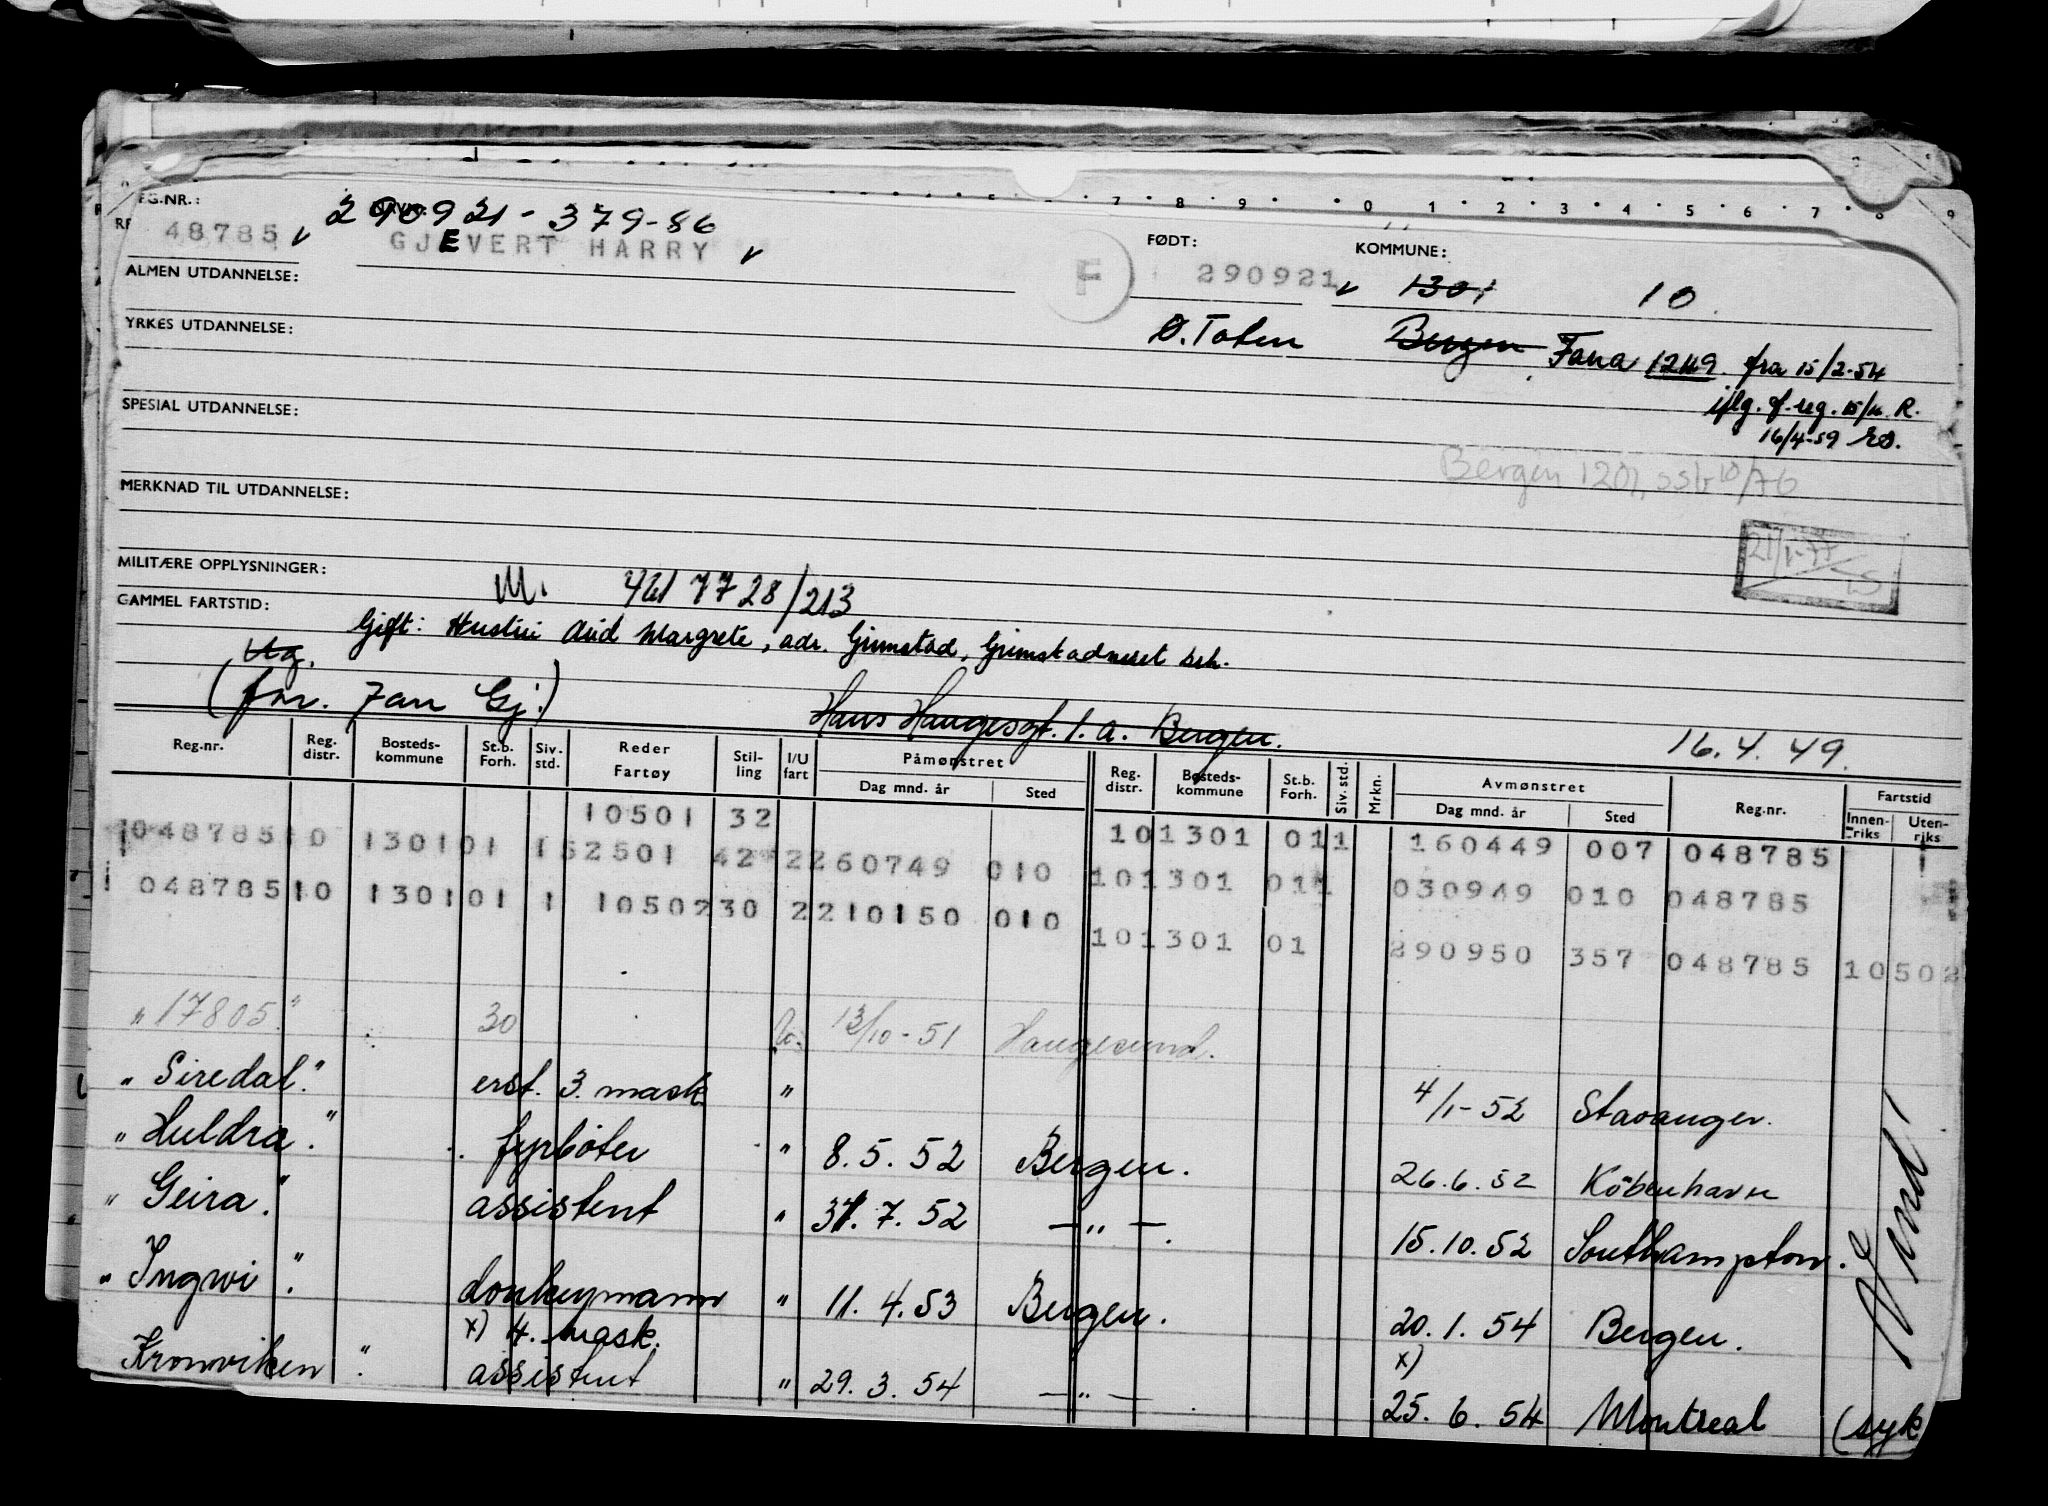 7 8 9 0 1 2 3 4 5 6 7 8 9
REG.NR.: 290921-379-86
48785 GJEVERT HARRY F FØDT: 290921 KOMMUNE: 1301 10
ALMEN UTDANNELSE:
YRKES UTDANNELSE: Ø. Toten Bergen Fana 1249. fra 15/2-54
iflg. R.
SPESIAL UTDANNELSE: 16/4-59
Bergen 1201, 10/76
MERKNAD TIL UTDANNELSE:
MILITÆRE OPPLYSNINGER: M. 461 7728/213
GAMMEL FARTSTID: Gift: Hustru Aud Margrete, adr. Grimstad, Grimstadneset
Ug.
(far. Jan Gj.) Hans Haugesgt. 1. a. Bergen. 16.4.49.
Reg.nr. Reg. distr. Bosteds-kommune St.b. Forh. Siv. std. Reder Fartøy Stil-ling I/U fart Påmønstret Dag mnd. år Sted Reg. distr. Bosteds-kommune St.b. Forh. Siv.std. Mrkn. Avmønstret Dag mnd. år Sted Reg.nr. Fartstid Innen-riks Uten-riks
10501 32 10 1301 01 1 160449 007 048785
048785 10 1301 01 1 52501 42 2 260749 010 10 1301 01 1 030949 010 048785
048785 10 1301 01 1 10502 30 2 210150 010 10 1301 01 290950 357 048785 10502
"17805." 30 u. 13/10-51 Haugesund.
"Siredal." erst. 3. mask " 4/1-52 Stavanger.
"Huldra." fyrbøter " 8.5.52 Bergen. 26.6.52 Köbenhavn
"Geira." assistent " 31.7.52 —"— 15.10.52 Southampton.
"Ingwi". donkeymann " 11.4.53 Bergen. 20.1.54 Bergen.
x) 4. mask. x)
Kronviken". assistent " 29.3.54 —"— 25.6.54 Montreal (syk